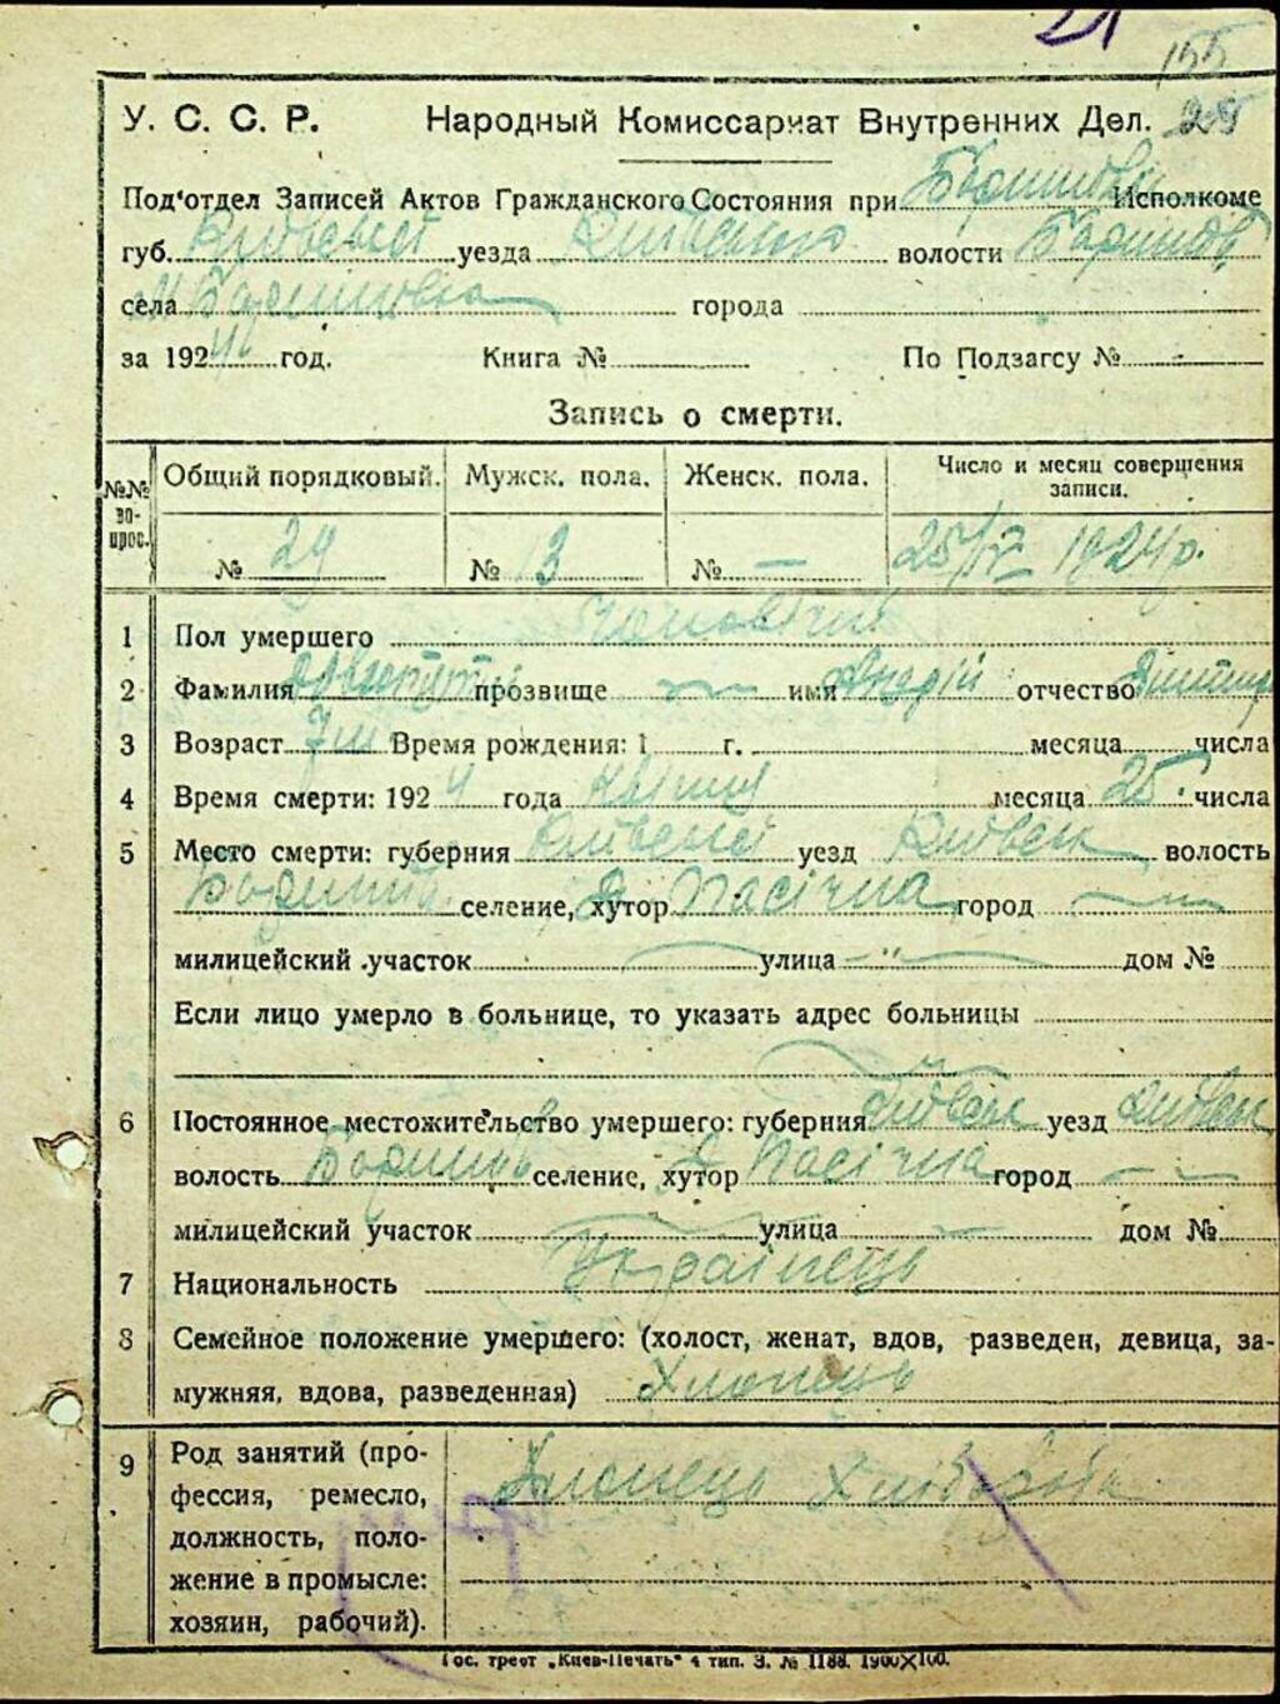 21
155
У. С. С. Р. Народный Комиссариат Внутренних Дел. 29
Под'отдел Записей Актов Гражданского Состояния при Исполкоме
губ. Київської уезда Київського волости Баришів
села м Баришовка города
за 1924 год. Книга № По Подзагсу №
Запись о смерти.
№№ во- прос. Общий порядковый. Мужск. пола. Женск. пола. Число и месяц совершения записи.
№ 29 № 13 № — 25/IV 1924 р.
1 Пол умершего Чоловічий
2 Фамилия прозвище — имя Андрій отчество Дмитр
3 Возраст Время рождения: 1 г. месяца числа
4 Время смерти: 1924 года Квітня месяца 25 числа
5 Место смерти: губерния Київської уезд Київськ волость
селение, хутор д Пасічна город —
милицейский участок — улица — " — дом №
Если лицо умерло в больнице, то указать адрес больницы
6 Постоянное местожительство умершего: губерния Київськ уезд Київськ
волость Баришів селение, хутор д Пасічна город —
милицейский участок — улица — дом №
7 Национальность Українець
8 Семейное положение умершего: (холост, женат, вдов, разведен, девица, за-
мужняя, вдова, разведенная) Хлопець
9 Род занятий (про-
фессия, ремесло,
должность, поло-
жение в промысле:
хозяин, рабочий).
Хлопець Хлібороба
Гос. трест „Киев-Печать" 4 тип. З. № 1188. 1900×100.